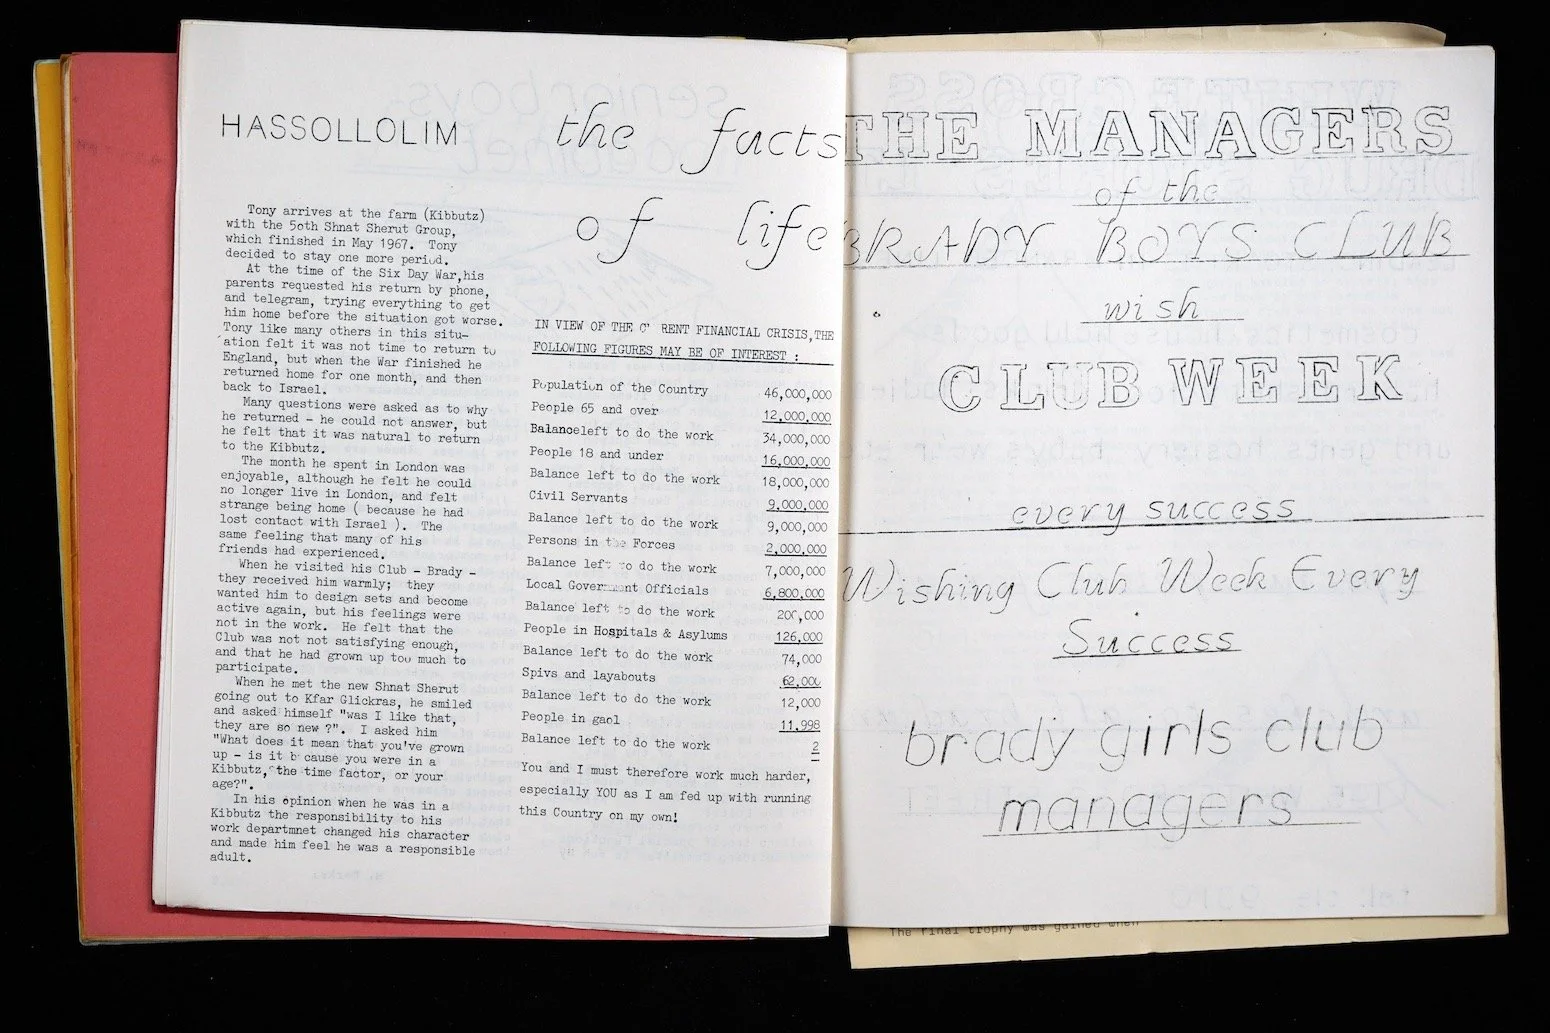 HASSOLLOLIM
Tony arrives at the farm (Kibbutz)
with the 5oth Shnat Sherut Group,
which finished in May 1967. Tony
decided to stay one more period.
At the time of the Six Day War,his
parents requested his return by phone,
and telegram, trying everything to get
him home before the situation got worse.
Tony like many others in this situ-
ation felt it was not time to return to
England, but when the War finished he
returned home for one month, and then
back to Israel.
Many questions were asked as to why
he returned - he could not answer, but
he felt that it was natural to return
to the Kibbutz.
The month he spent in London was
enjoyable, although he felt he could
no longer live in London, and felt
strange being home ( because he had
lost contact with Israel ). The
same feeling that many of his
friends had experienced.
When he visited his Club - Brady -
they received him warmly; they
wanted him to design sets and become
active again, but his feelings were
not in the work. He felt that the
Club was not not satisfying enough,
and that he had grown up too much to
participate.
When he met the new Shnat Sherut
going out to Kfar Glickras, he smiled
and asked himself "was I like that,
they are so new ?". I asked him
"What does it mean that you've grown
up - is it b cause you were in a
Kibbutz, the time factor, or your
age?".
In his opinion when he was in a
Kibbutz the responsibility to his
work departmnet changed his character
and made him feel he was a responsible
adult.
the facts
of life
IN VIEW OF THE C RENT FINANCIAL CRISIS,THE
FOLLOWING FIGURES MAY BE OF INTEREST :
Population of the Country 46,000,000
People 65 and over 12,000,000
Balanceleft to do the work 34,000,000
People 18 and under 16,000,000
Balance left to do the work 18,000,000
Civil Servants 9,000,000
Balance left to do the work 9,000,000
Persons in the Forces 2,000,000
Balance left to do the work 7,000,000
Local Government Officials 6,800,000
Balance left to do the work 200,000
People in Hospitals & Asylums 126,000
Balance left to do the work 74,000
Spivs and layabouts 62,000
Balance left to do the work 12,000
People in gaol 11,998
Balance left to do the work 2
You and I must therefore work much harder,
especially YOU as I am fed up with running
this Country on my own!
THE MANAGERS
of the
BRADY BOYS CLUB
wish
CLUB WEEK
every success
Wishing Club Week Every
Success
brady girls club
managers
The final trophy was gained when